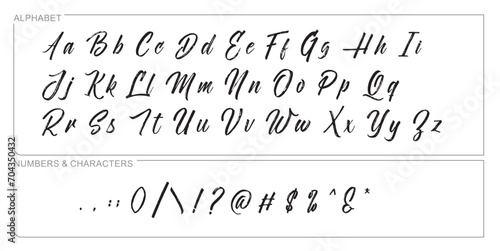 ALPHABET
Aa Bb Cc Dd Ee Ff Gg Hh Ii
Jj Kk Ll Mm Nn Oo Pp Qq
Rr Ss Tt Uu Vv Ww Xx Yy Zz
NUMBERS & CHARACTERS
. , : ; 0 / \ ! ? @ # $ % ^ & *
Adobe Stock | #704350432